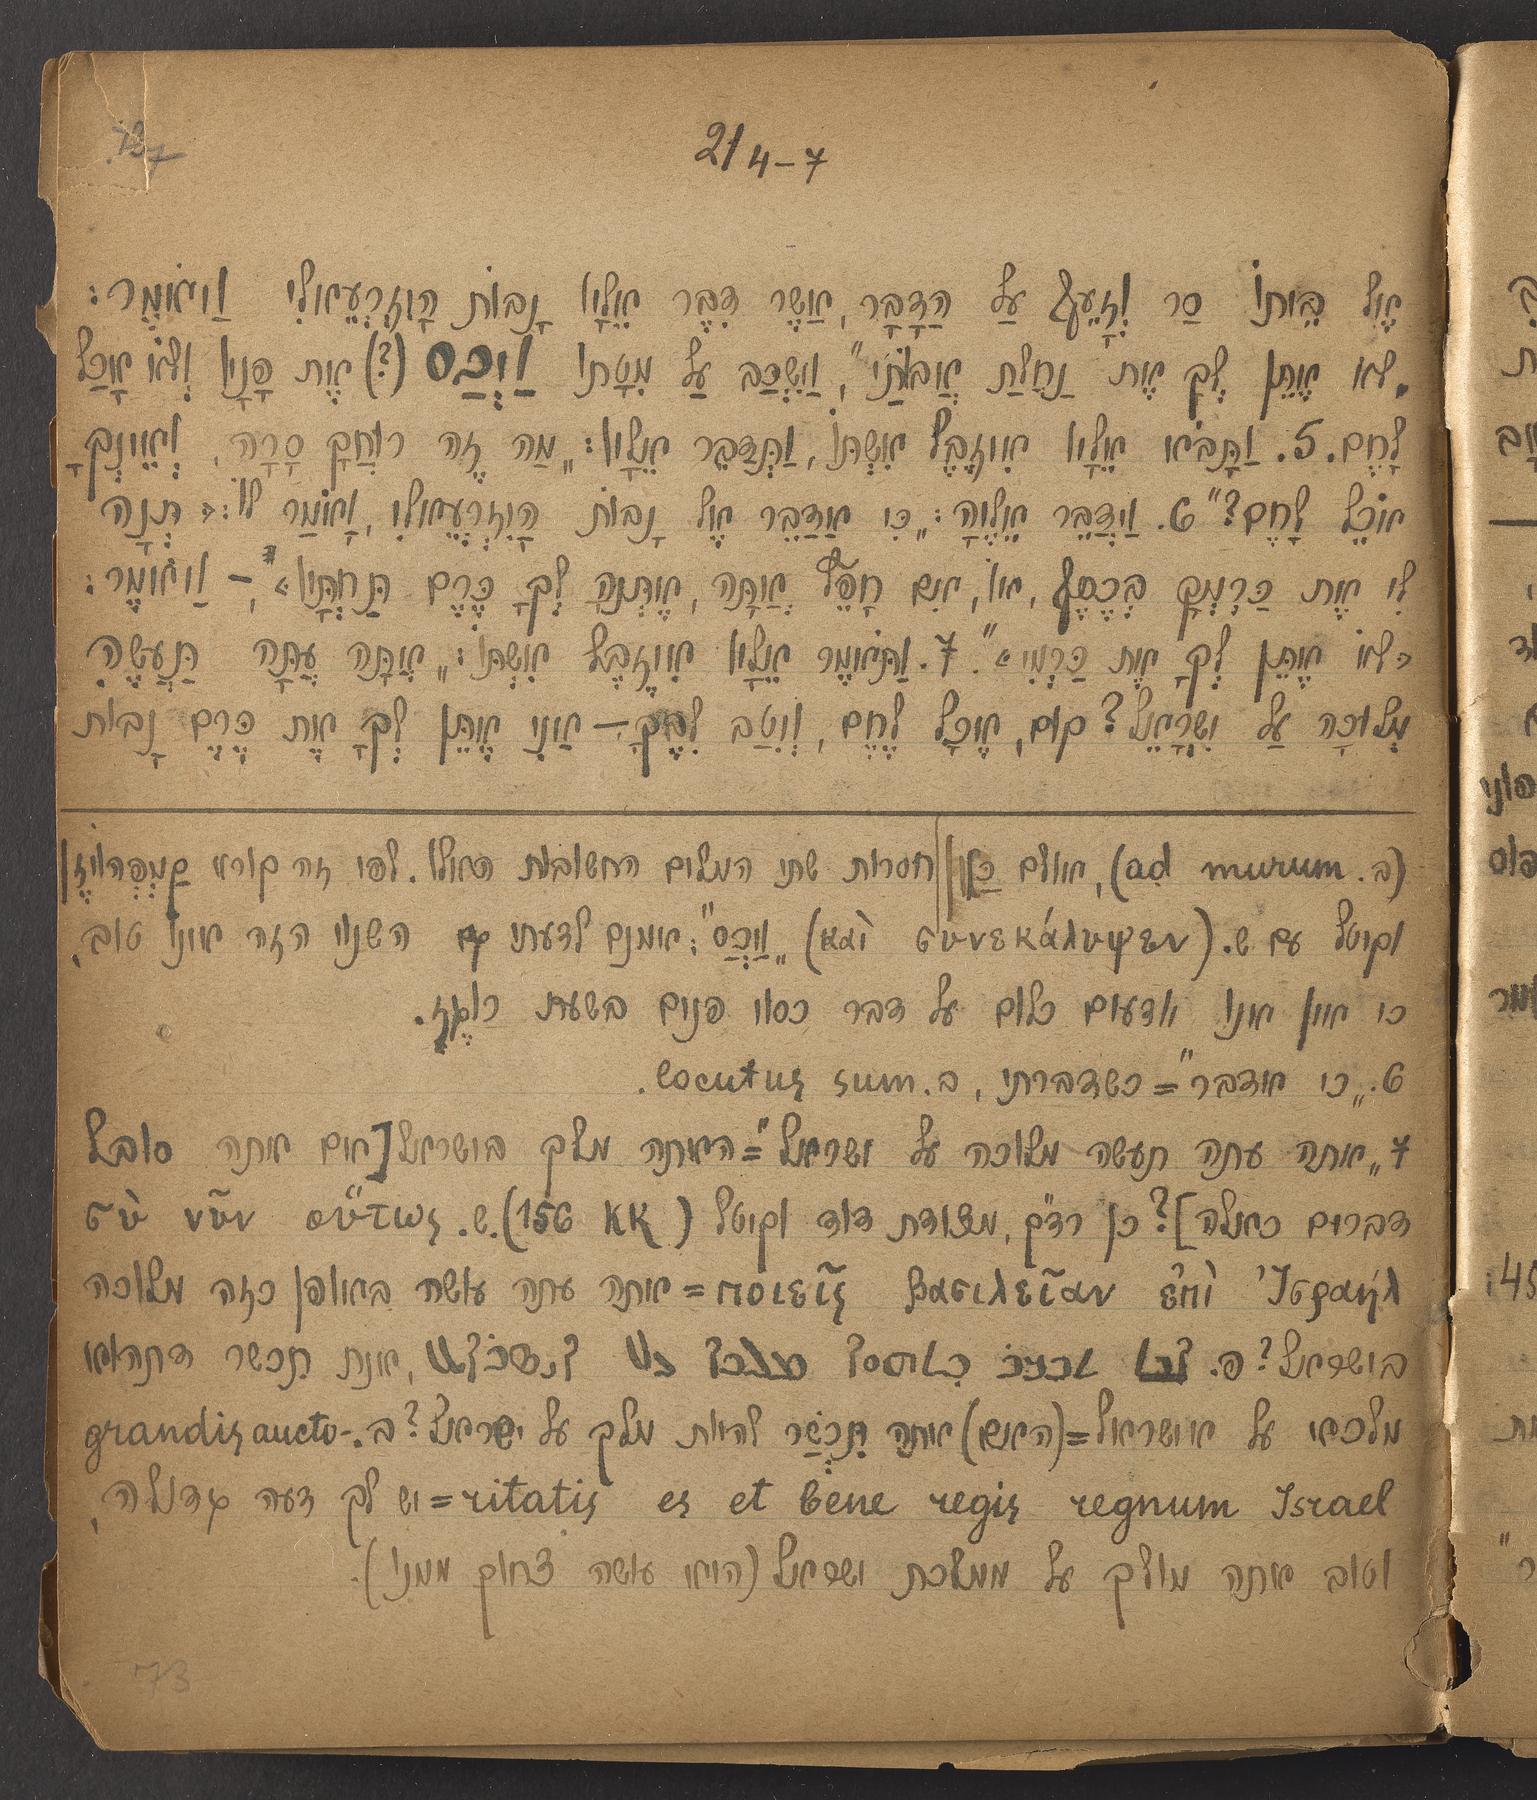 21 4-7
אֶל בֵּיתוֹ סַר וְזָעֵף עַל הַדָּבָר, אֲשֶׁר דִּבֶּר אֵלָיו נָבוֹת הַיִּזְרְעֵאלִי וַיֹּאמֶר:
„לא אֶתֵּן לְךָ אֶת נַחֲלַת אֲבוֹתַי", וַיִּשְׁכַּב עַל מִטָּתוֹ וַיְכַס (?) אֶת פָּנָיו וְלֹא אָכַל
לָחֶם. 5. וַתָּבֹא אֵלָיו אִיזֶבֶל אִשְׁתּוֹ, וַתְּדַבֵּר אֵלָיו: „מַה זֶּה רוּחֲךָ סָרָה, וְאֵינְךָ
אוֹכֵל לָחֶם?" 6. וַיְדַבֵּר אֵלֶיהָ: „כִּי אֲדַבֵּר אֶל נָבוֹת הַיִּזְרְעֵאלִי, וָאֹמַר לוֹ: «תְּנָה
לִּי אֶת כַּרְמְךָ בְּכֶסֶף, או, אִם חָפֵץ אַתָּה, אֶתְּנָה לְךָ כֶרֶם תַּחְתָּיו», – וַיֹּאמֶר:
«לֹא אֶתֵּן לְךָ אֶת כַּרְמִי»". 7. וַתֹּאמֶר אֵלָיו אִיזֶבֶל אִשְׁתּוֹ: „אַתָּה עַתָּה תַּעֲשֶׂה
מְלוּכָה עַל יִשְׂרָאֵל? קום, אֱכָל לֶחֶם, וְיִטַב לִבֶּךָ – אֲנִי אֶתֵּן לְךָ אֶת כֶּרֶם נָבוֹת
(ב. ad murum), אולם כאן חסרות שתי המלים החשובות האלו. לפי זה קורא קַמְפְּהוֹיְזֶן
וקיטל עם ש. (καὶ συνεκάλυψεν) „וַיְכַס"; אמנם לדעתי גם השנוי הזה אינו טוב,
כי אין אנו יודעים כלום על דבר כסוי פנים בשעת רוֹגֶז.
6. „כי אדבר" = כשדברתי, ב. locutus sum.
7 „אתה עתה תעשה מלוכה על ישראל" = האתה מלך בישראל [אם אתה סובל
דברים כאלה]? כן רד"ק, מצודת דוד וקיטל (KK 156). ש. σὺ νῦν οὕτως
ποιεῖς βασιλεῖαν ἐπὶ Ἰσραήλ = אתה עתה עושה באופן כזה מלוכה
בישראל? פ. , אנת תכשר דתהוא
מלכא על איסראל = (האם) אתה תִּכְשַׁר להיות מלך על ישראל? ב. grandis aucto-
ritatis es et bene regis regnum Israel = יש לך דעה גדולה,
וטוב אתה מולך על ממלכת ישראל (היא עושה צחוק ממנו).
73